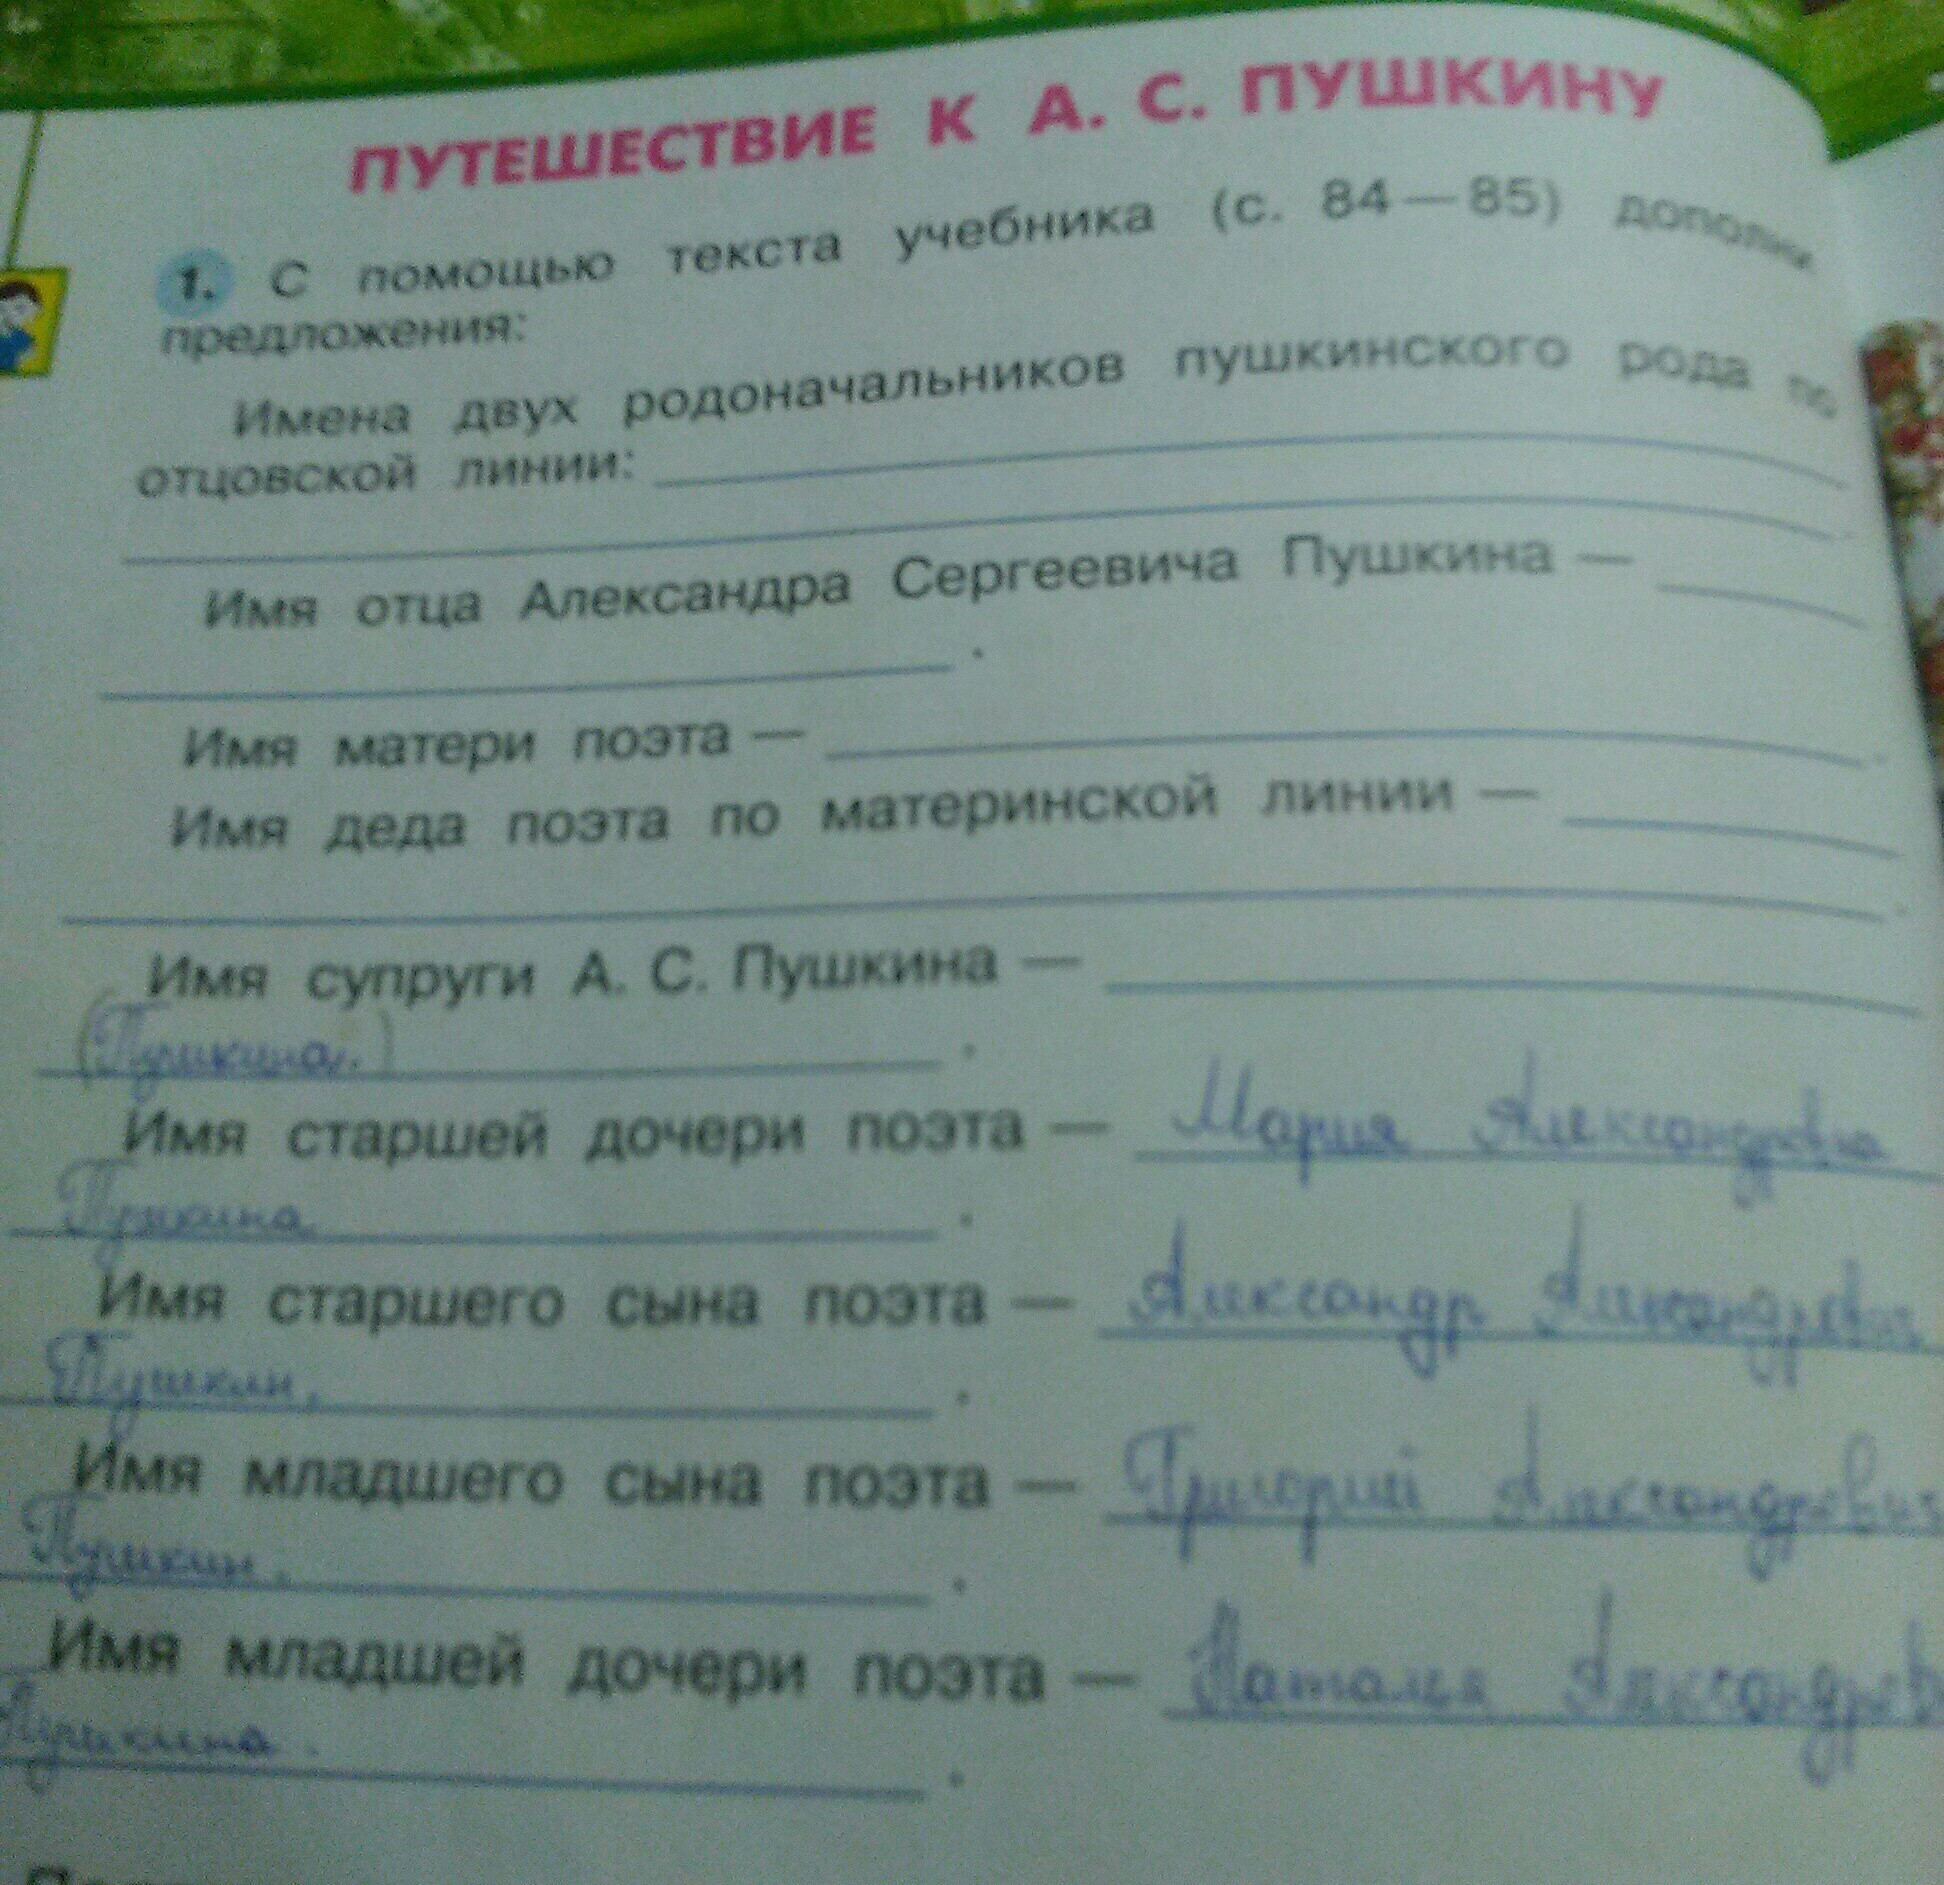 ПУТЕШЕСТВИЕ К А. С. ПУШКИНУ
1. С помощью текста учебника (с. 84—85) дополни
предложения:
Имена двух родоначальников пушкинского рода по
отцовской линии:
Имя отца Александра Сергеевича Пушкина —
.
Имя матери поэта — .
Имя деда поэта по материнской линии —
.
Имя супруги А. С. Пушкина —
(Пушкина.) .
Имя старшей дочери поэта — Мария Александровна
Пушкина .
Имя старшего сына поэта — Александр
Пушкин. .
Имя младшего сына поэта — Григорий Александрович
Пушкин. .
Имя младшей дочери поэта — Наталья Александров
Пушкина. .